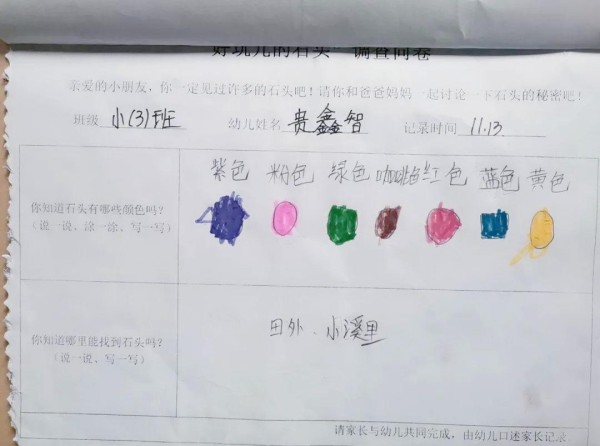 好玩儿的石头 调查问卷
亲爱的小朋友，你一定见过许多的石头吧！请你和爸爸妈妈一起讨论一下石头的秘密吧！
班级 小(3)班 幼儿姓名 贵鑫智 记录时间 11.13
紫色 粉色 绿色 咖啡色 红色 蓝色 黄色
你知道石头有哪些颜色吗？
（说一说、涂一涂、写一写）
田外.小溪里
你知道哪里能找到石头吗？
（说一说、写一写）
请家长与幼儿共同完成，由幼儿口述家长记录